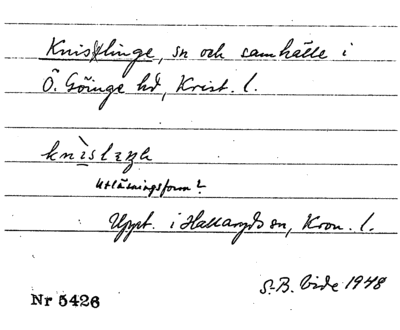 Knislinge, sn och samhälle i
Ö. Göinge hd, Krist. l.
knislɪŋə
Utläsningsform?
Uppt. i Hallaryds sn, Kron. l.
S.B. 1948
Nr 5426